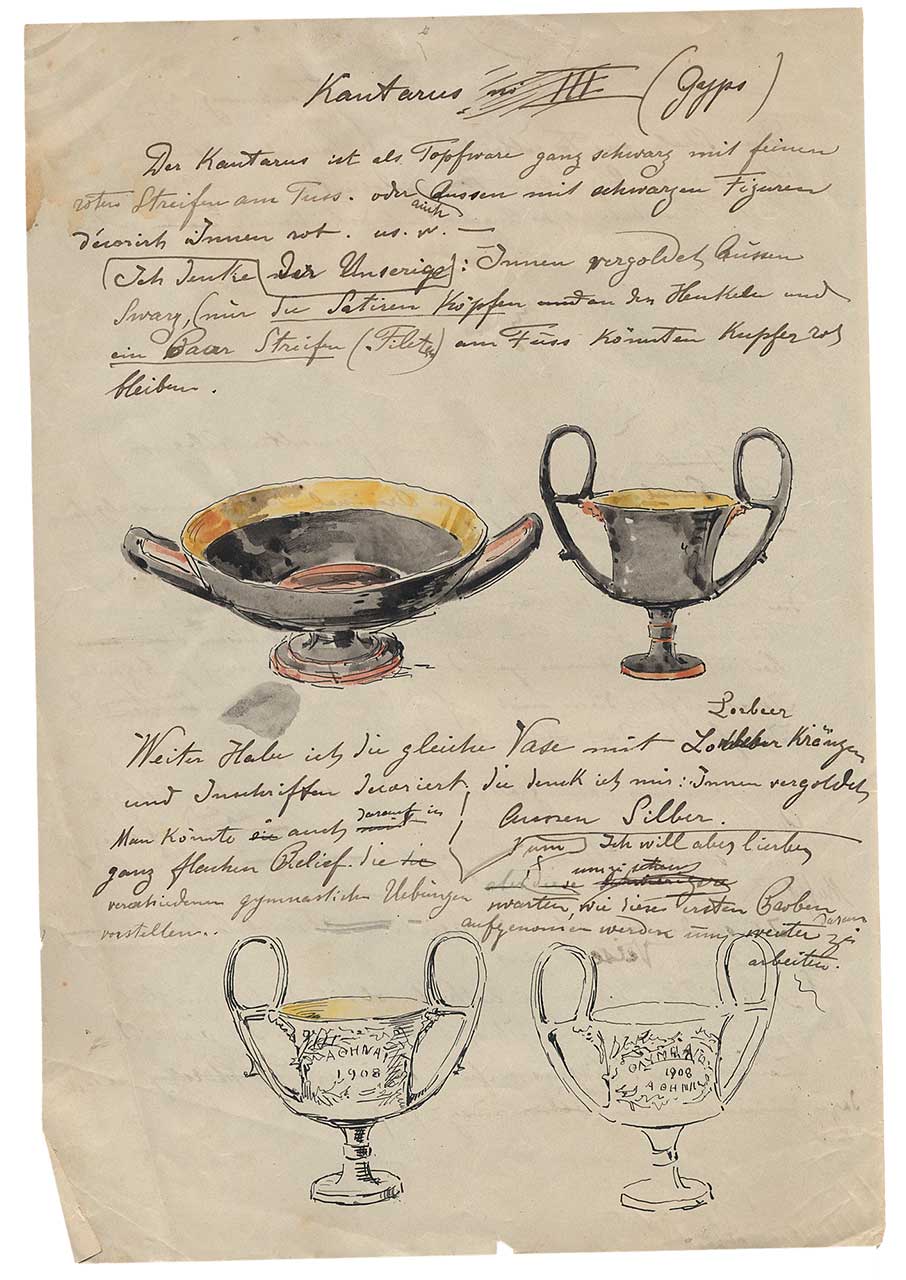 Kantarus no III (Gyps)
Der Kantarus ist als Topfware ganz schwarz mit feinen
roten Streifen am Fuss. oder Aussen mit schwarzen Figuren
auch
décorirt Innen rot. us. w. —
Ich denke der Unserige: Innen vergoldet Aussen
Swarz, (nur die Satiren Köpfen und an den Henkeln und
ein Paar Streifen (Filets) am Fuss könnten Kupfer rot
bleiben.
Lorbeer
Weiter Habe ich die gleiche Vase mit Kränzen
und Inschriften decoriert. die denk ich mir: Innen vergoldet
Aussen Silber.
Man könnte auch darauf in
ganz flachen Relief. die
verschiedenen gymnastischen Uebungen
vorstellen..
Ich will aber lieber
warten, wie diese ersten Proben
aufgenomen werden um weiter daran zu
arbeiten.
ΑΘΗΝΑΙ
1908
ΟΛΥΜΠΙΑ
1908
ΑΘΗΝΑΙ